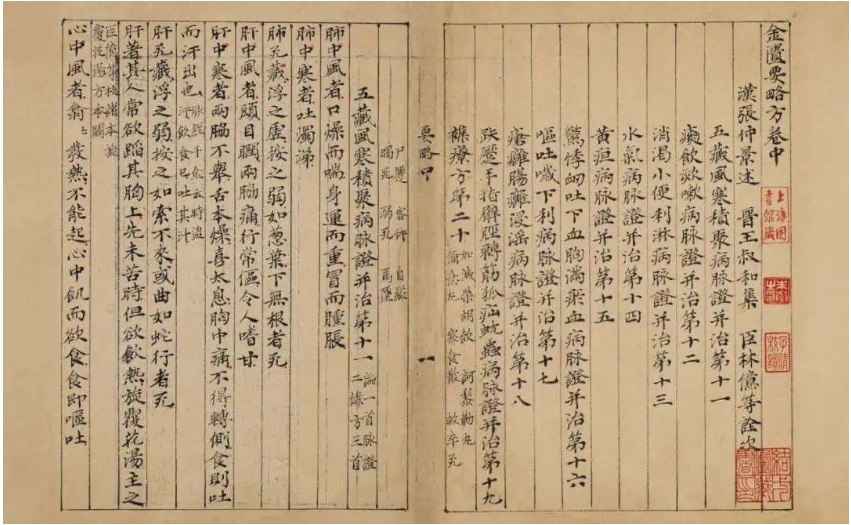 金匱要略方卷中
漢張仲景述 晉王叔和集 臣林億等詮次
五藏風寒積聚病脉證并治第十一
痰飲欬嗽病脉證并治第十二
消渴小便利淋病脉證并治第十三
水氣病脉證并治第十四
黄疸病脉證并治第十五
驚悸衂吐下血胸滿瘀血病脉證并治第十六
嘔吐噦下利病脉證并治第十七
瘡癰腸癰浸淫病脉證并治第十八
趺蹷手指臂脛轉筋狐疝蚘蟲病脉證并治第十九
襍療方第二十
寒食散 救卒死
要略中 一
尸蹷 客忤 自縊
暍死 溺死 馬墜
五藏風寒積聚病脉證并治第十一
論一首脉證
二 方三首
肺中風者口燥而喘身運而重冒而腫脹
肺中寒者吐濁涕
肺死藏浮之虛按之弱如葱葉下無根者死
肝中風者頭目瞤兩脇痛行常傴令人嗜甘
肝中寒者兩脇不舉舌本燥喜太息胸中痛不得轉側食則吐
而汗出也
脉經千金云時盜
汗飲食已吐其汁
肝死藏浮之弱按之如索不來或曲如蛇行者死
肝著其人常欲蹈其胸上先未苦時但欲飲熱旋覆花湯主之
臣億等校諸本
覆花湯方本闕
心中風者翕〻發熱不能起心中飢而欲食食即嘔吐
上海圖書館藏